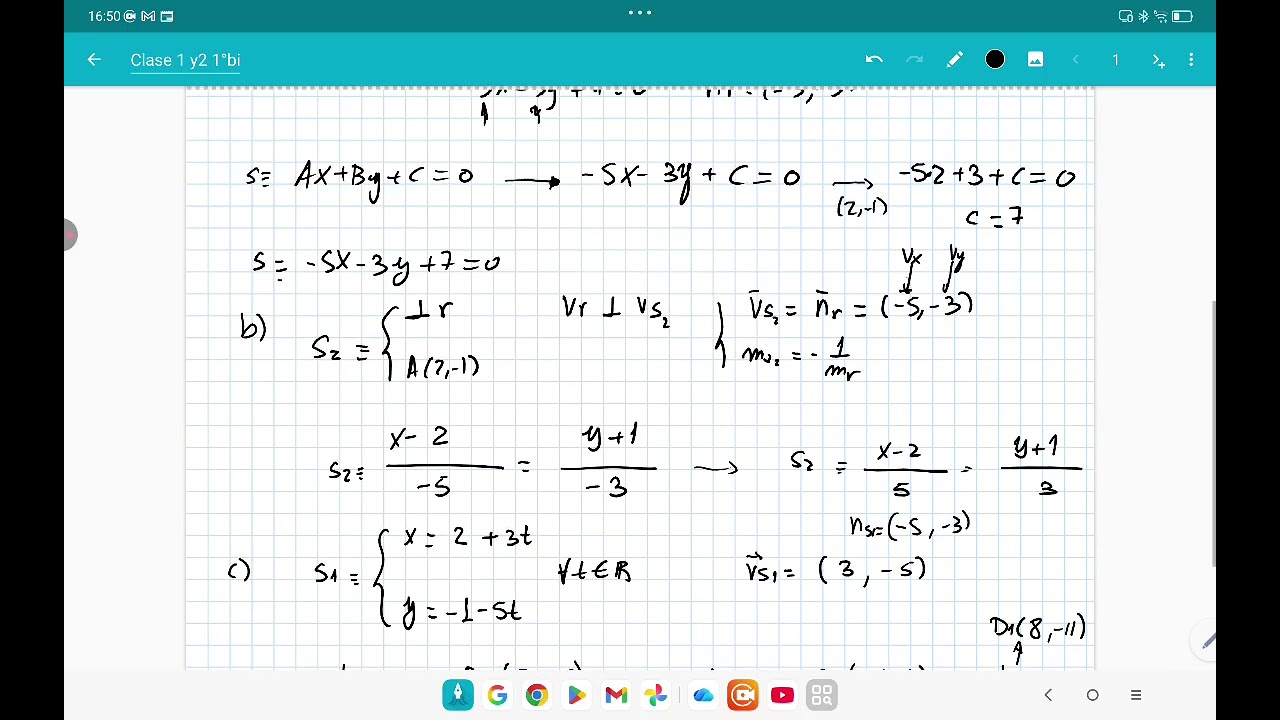 16:50
Clase 1 y2 1°bi
1
s≡ Ax+By+C=0 → -5x-3y+C=0 → (2,-1) -5·2+3+C=0
C=7
s≡ -5x-3y+7=0
Vx Vy
b) S₂≡ { ⊥r Vr ⊥ Vs₂ { V̄s₂ = n̄r = (-5,-3)
A(2,-1) ms₂ = - 1/mr
s₂≡ x-2/-5 = y+1/-3 → s₂ ≡ x-2/5 = y+1/3
ns₁=(-5,-3)
c) S₁≡ { x=2+3t ∀t∈R v⃗s₁=(3,-5)
y=-1-5t
D₁(8,-11)